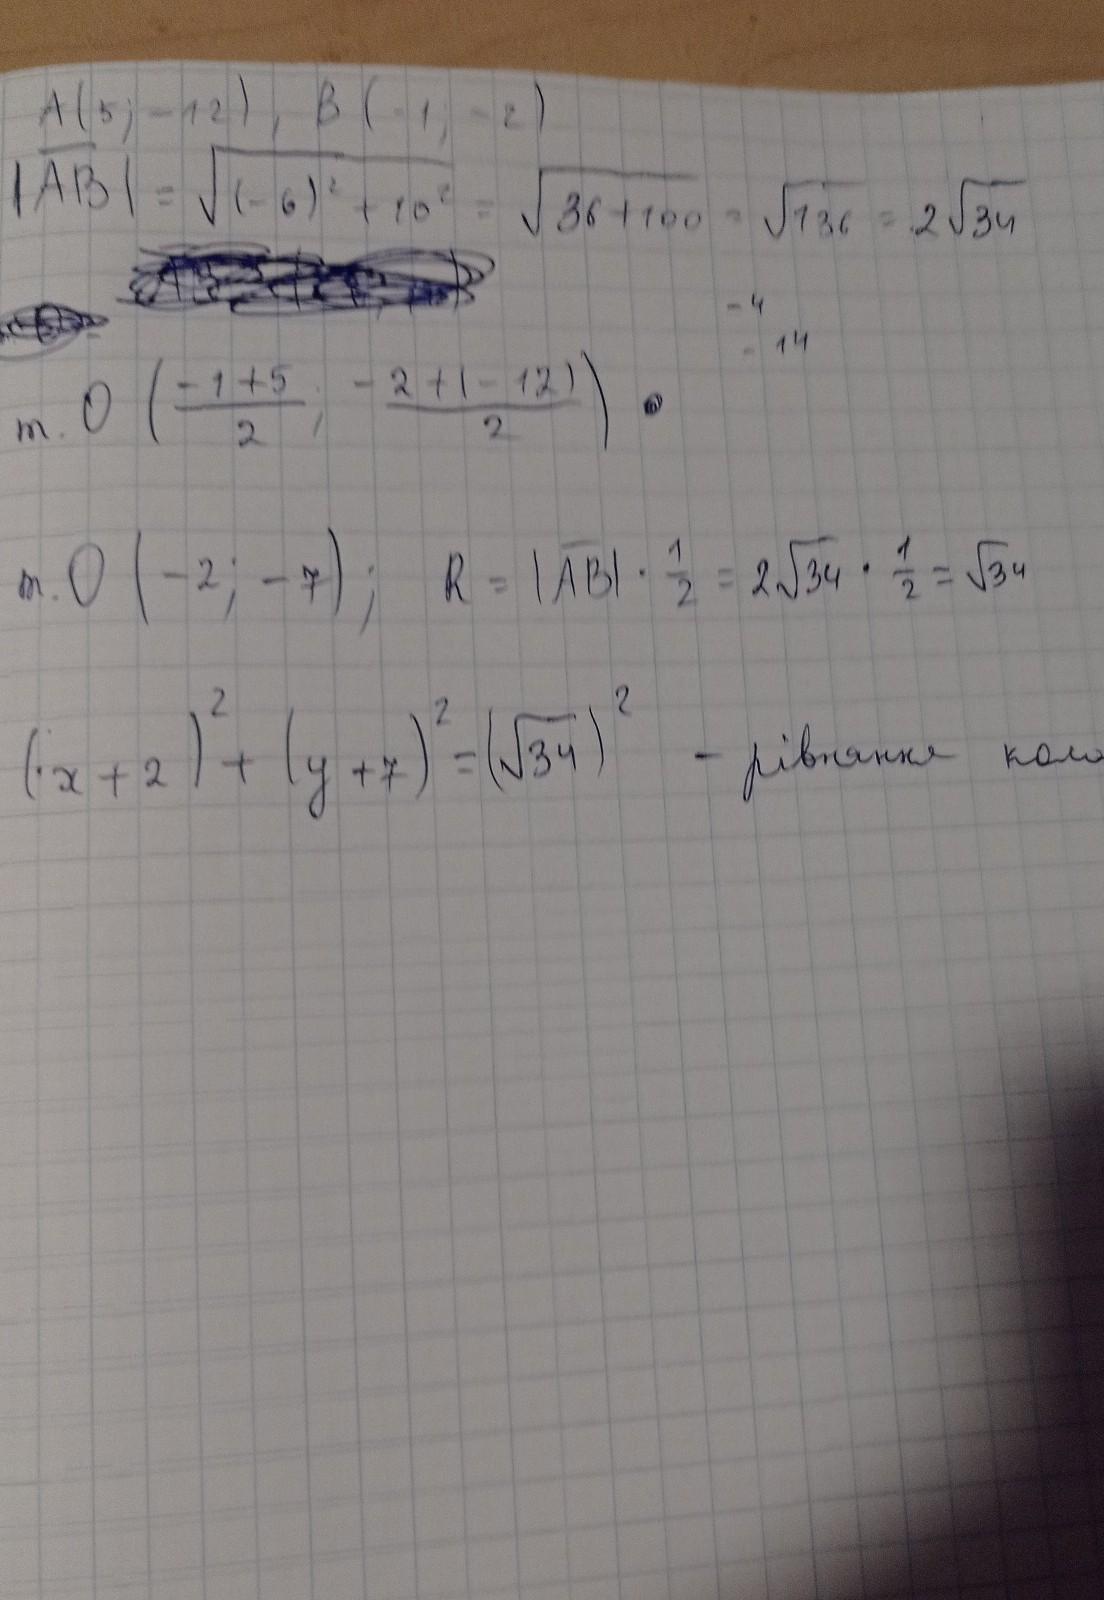 A(5; -12), B(-1; -2)
|AB| = √((-6)² + 10²) = √(36+100) = √136 = 2√34
-4
-14
т. O ((-1+5)/2; (-2+(-12))/2)
т. O (-2; -7); R = |AB| · 1/2 = 2√34 · 1/2 = √34
(x+2)² + (y+7)² = (√34)² - рівняння кола